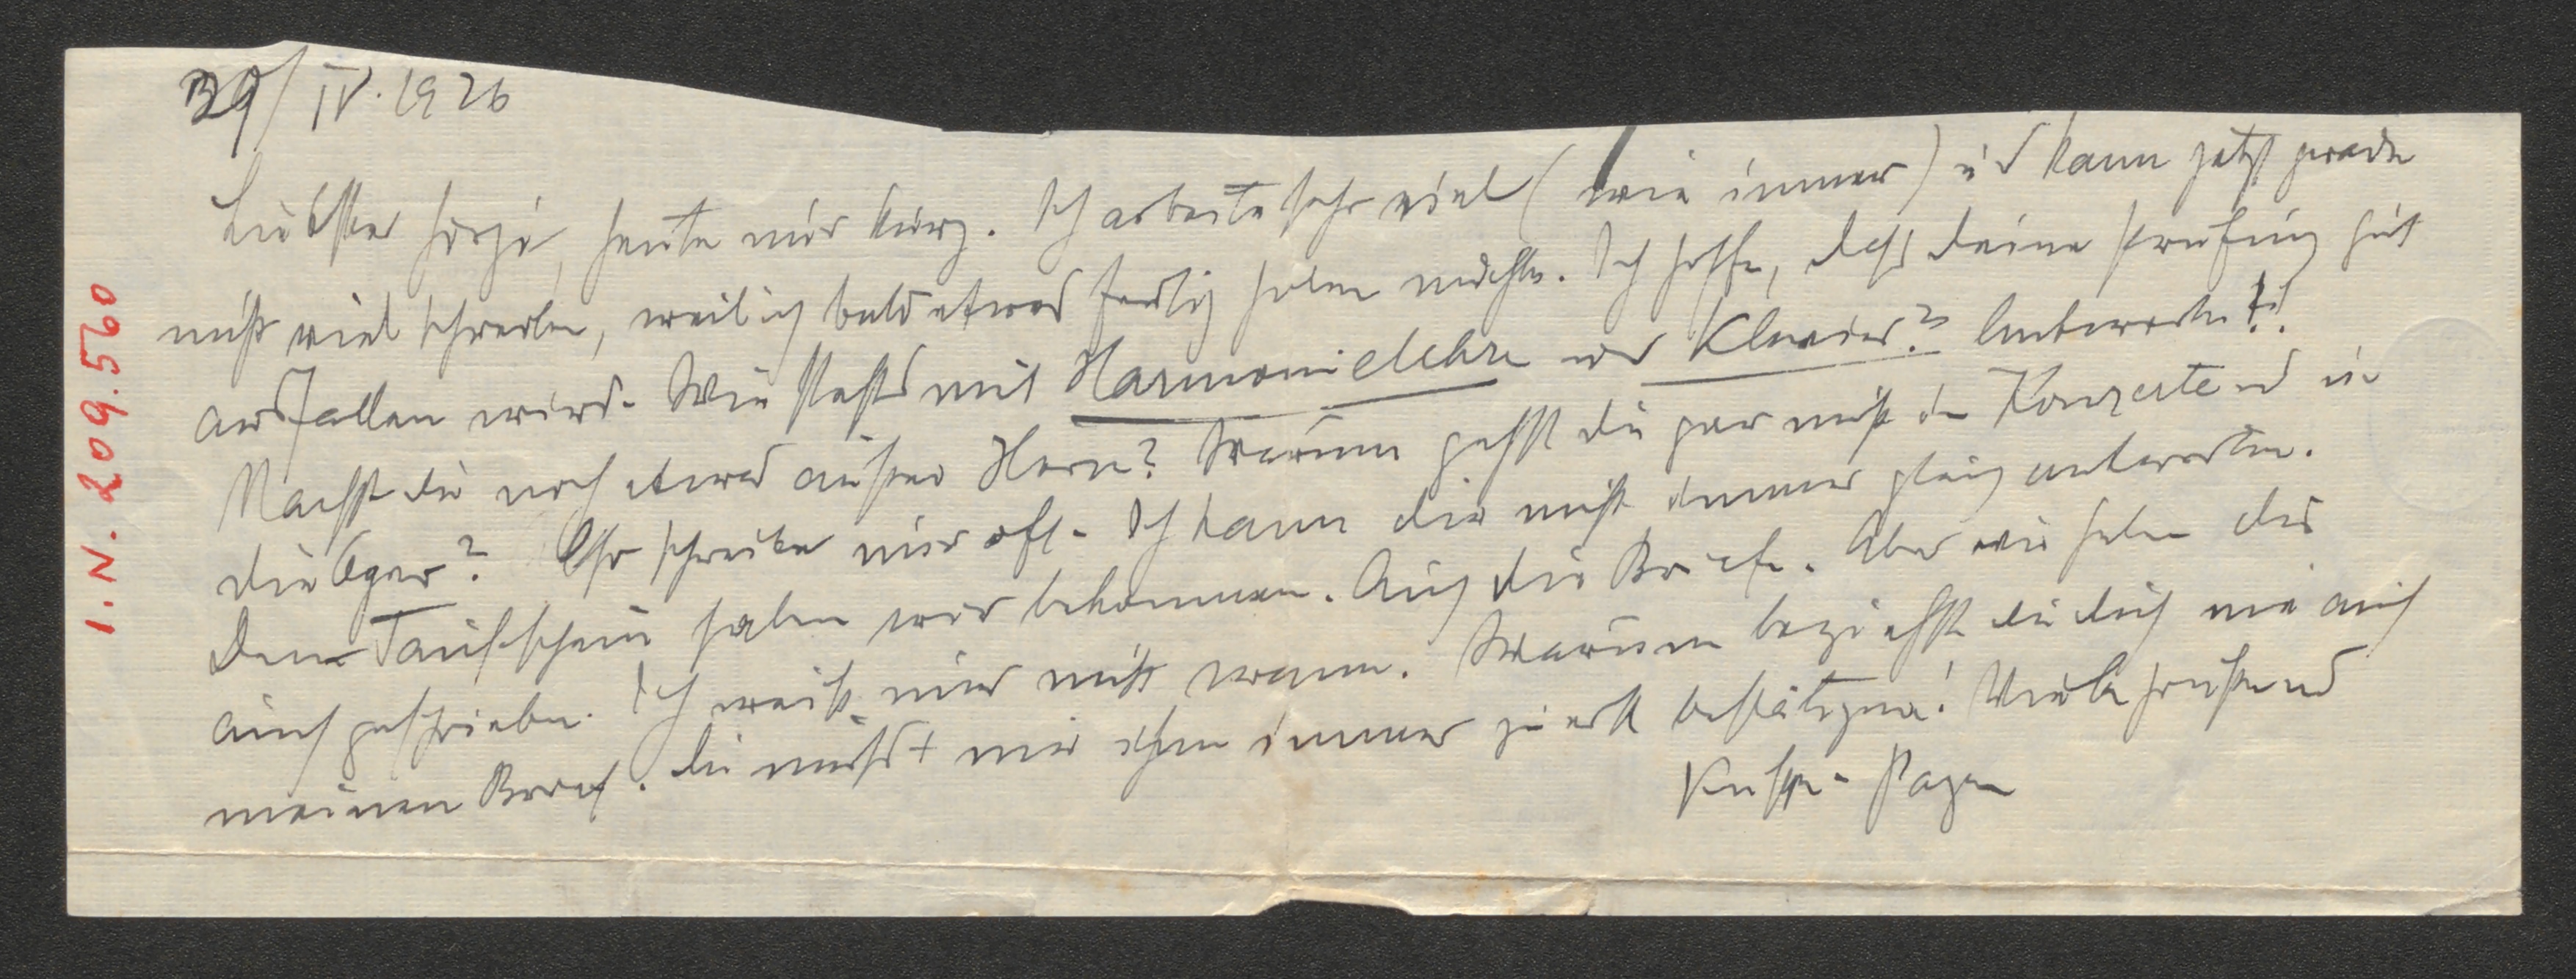 29/IV. 1926
Liebster Görgi, heute nur kurz. Ich arbeite sehr viel (wie immer) und kann jetzt gerade
nicht viel schreiben, weil ich bald etwas fertig haben möchte. Ich hoffe, dass deine Prüfung gut
ausfallen wird. Wie stehts mit Harmonielehre und Klavier? Antworte!!
Machst du noch etwas außer Horn? Warum gehst du gar nicht in Konzerte und in
die Oper? Also schreibe mir oft. Ich kann dir nicht immer gleich antworten.
Den Taufschein haben wir bekommen. Auch die Briefe. Aber wir haben dir
auch geschrieben. Ich weiß nur nicht wann. Warum beziehst du dich nie auf
meinen Brief. Du musst mir ihn immer zuerst bestätigen! Viele Grüße und
Küsse Papa
I.N. 209.560